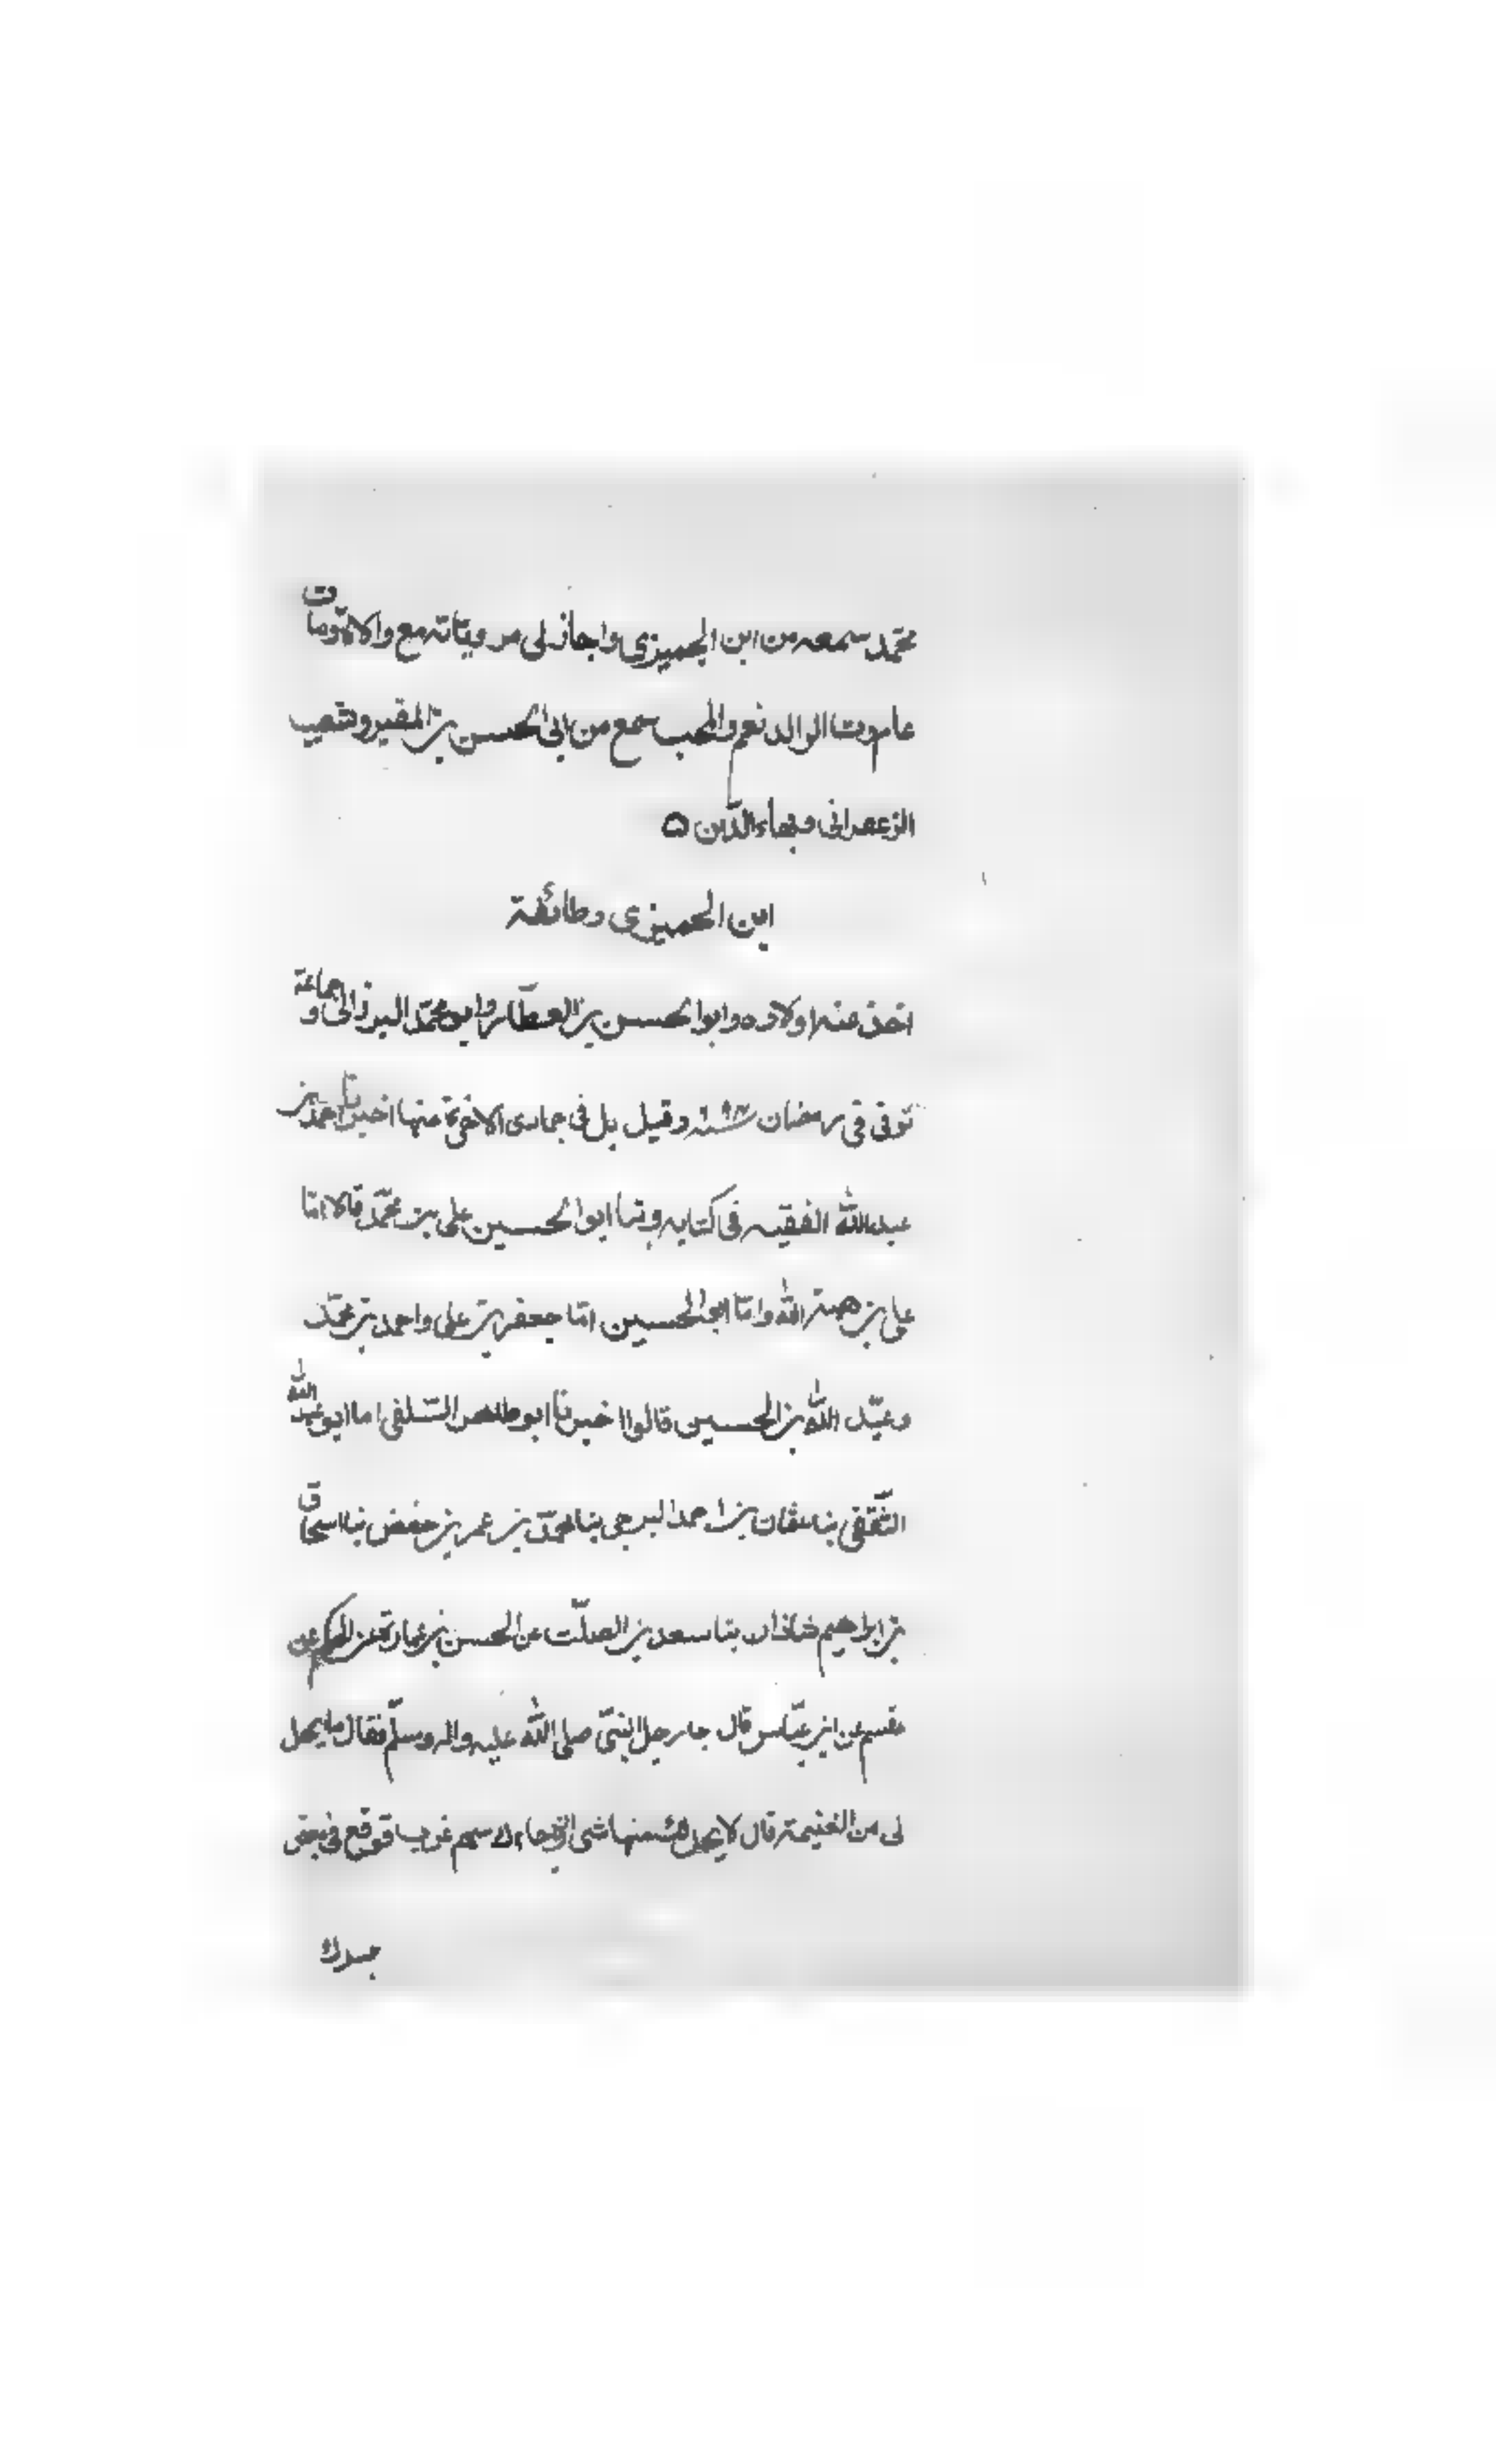 محمّد سمعه من ابن الجميزي واجاز لى مروياته مع والاده ومات
عام موت الوالد نعم والمحب سمع من ابى الحسن بن المقير وشعيب
الزعفرانى وبهاء الدّين ۵
ابن الجميزى وطائفة
اخذ عنه اولاده وابوالحسن بن العطّار وابو محمّد البرزالى وجماعة
توفى فى رمضان وقيل بل فى جمادى الاخرة منها اخبرنا احمد بن
عبدالله الفقيه فى كتابه وثنا ابوالحسين على بن محمّد قالا انا
على بن هبة الله وانا ابوالحسين انا جعفر بن على واحمد بن محمّد
وعبّد الله بن الحسين قالوا اخبرنا ابوطاهر السّلفى انا ابو عبد الله
الثّقفى بنا بن احمد البرجى بنا محمّد بن عمر بن حفض بنا اسحاق
بن ابراهيم شاذان بنا سعد بن الصلّت عن الحسن بن عمارة عن الحكم عن
مقسم عن ابن عبّاس قال جا رجل النبىّ صلى الله عليه واله وسلّم فقال ما يحل
لى من الغنيمة قال لا يحل منها شى سهم غرب فوقع فى
جسدك